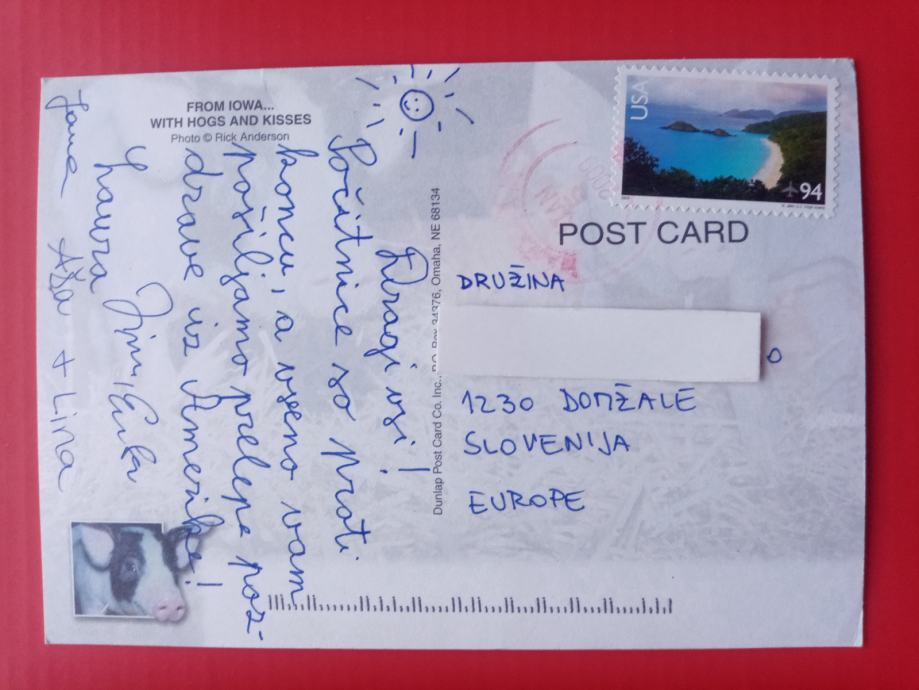 FROM IOWA...
WITH HOGS AND KISSES
Photo © Rick Anderson
Dragi vsi!
Počitnice so proti
koncu, a vseno vam
pošiljamo prelepe poz-
drave iz Amerike!
Laura
Jana Aša + Lina
Dunlap Post Card Co. Inc., P.O. Box 34376, Omaha, NE 68134
USA
94
POST CARD
DRUŽINA
1230 DOMŽALE
SLOVENIJA
EUROPE